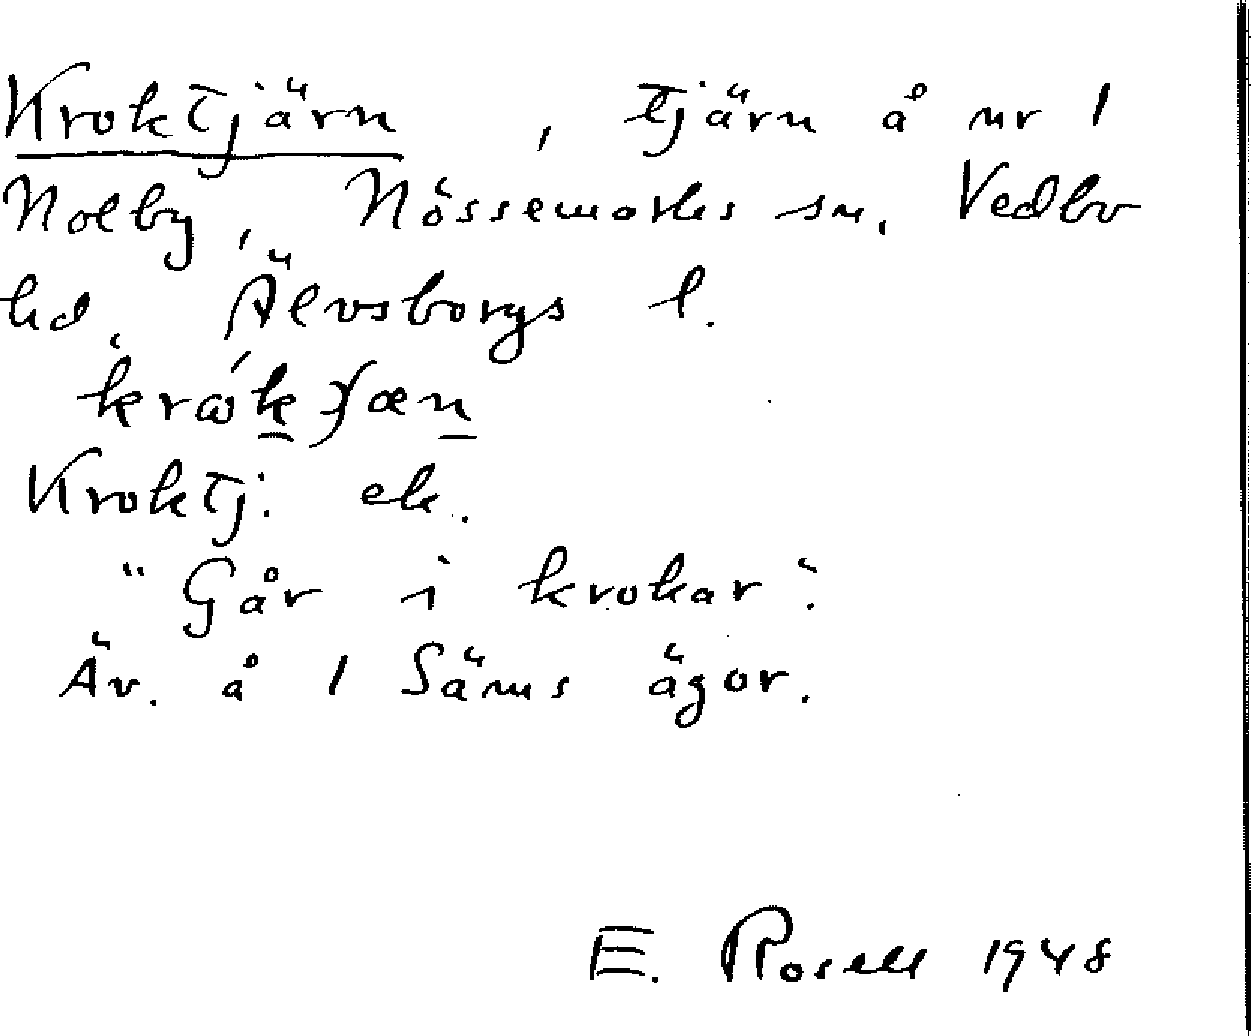 Kroktjärn, tjärn å nr 1
Nolby, Nössemarks sn, Vedbo
hd, Älvsborgs l.
Kroktj. ek.
"Går i krokar".
Äv. å 1 Säms ägor.
E. Rosell 1948